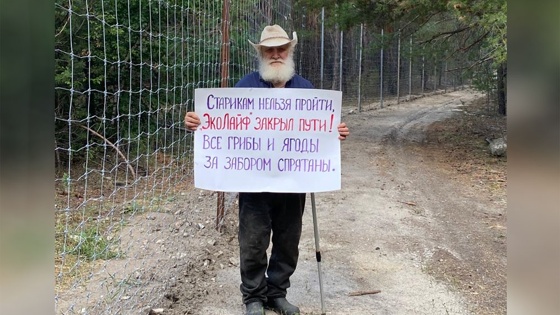 Старикам нельзя пройти,
ЭкоЛайф закрыл пути!
Все грибы и ягоды
за забором спрятаны.